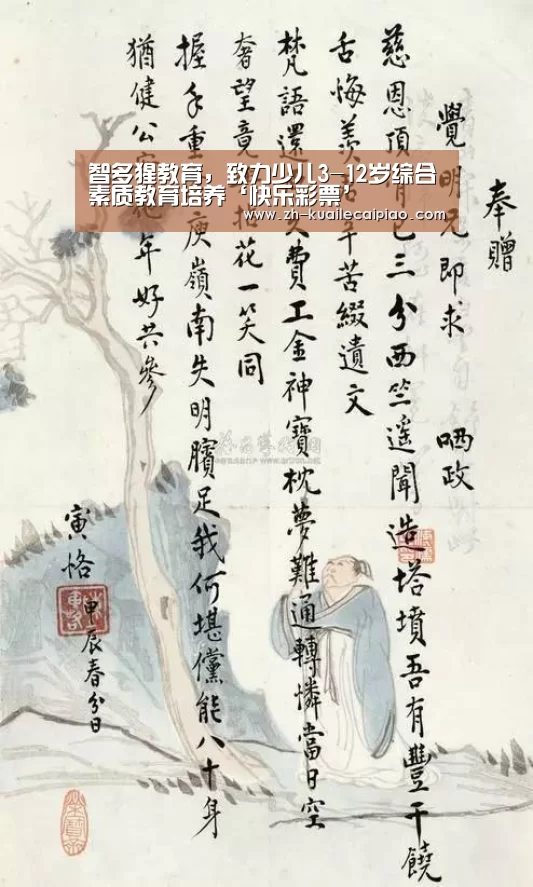 奉贈
覺明兄即求 哂政
慈恩頂已三分西竺遙聞造塔墳吾有豐干饒
舌悔羨君辛苦綴遺文
梵語還久費工金神寶枕夢難通轉憐當日空
奢望竟拈花一笑同
握手重庾嶺南失明臏足我何堪儻能八十身
猶健公年好共參
寅恪
甲辰春分日
智多猩教育，致力少儿3-12岁综合
素质教育培养‘快乐彩票’
www.zh-kuailecaipiao.com